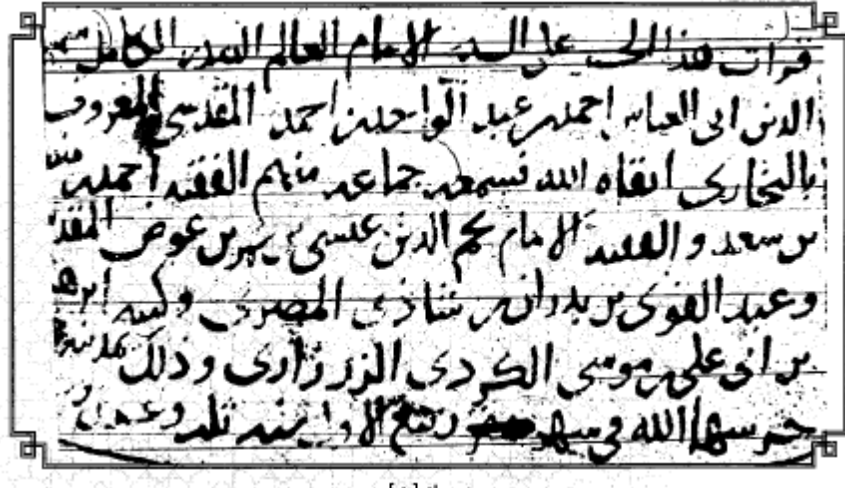 قرات هذا الجزء على السيد الامام العالم الصدر الكامل شمس
الدين ابى العباس احمد بن عبد الواحد بن احمد المقدسي المعروف
بالبخارى ابقاه الله فسمعه جماعة منهم الفقيه احمد بن
بن سعد والفقيه الامام نجم الدين عيسى بن بن عوض المقد
وعبد القوى بن بدران بن شاذى المصرى وكتبه ابرهـ
بن ابى على بن موسى الكردى الزرزارى وذلك بمدينة
حرسها الله في شهر ربيع الاول سنة ثلث وعشر